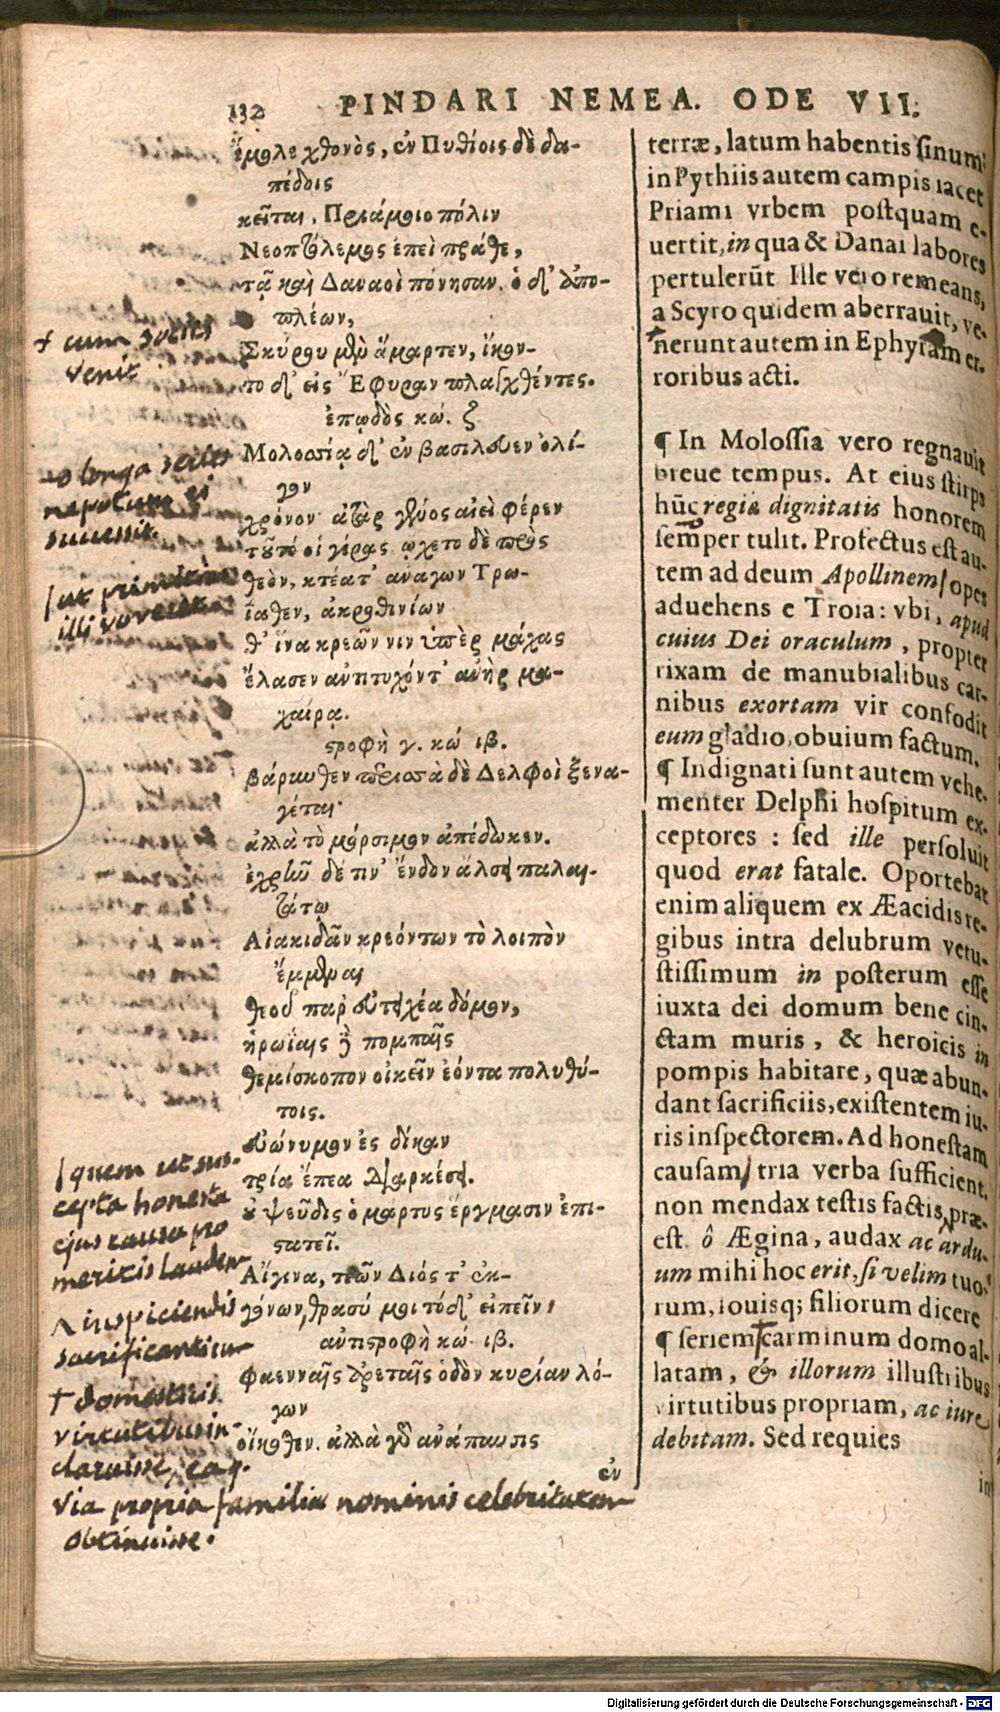 132 PINDARI NEMEA. ODE VII.
ἔμολε χθονὸς, ἐν Πυθίοις δὲ δα-
πέδοις
κεῖται, Πριάμοιο πόλιν
Νεοπτόλεμος ἐπεὶ πράθε,
τᾷ καὶ Δαναοὶ πόνησαν. ὁ δ' ἀπο-
πλέων,
Σκύρου μὲν ἅμαρτεν, ἵκον-
το δ' εἰς Ἔφυραν πλαγχθέντες.
ἐπῳδὸς κώ. ζ
Μολοσσίᾳ δ' ἐν βασίλευεν ὀλί-
γον
χρόνον· ἀτὰρ γένος αἰεὶ φέρεν
τοῦτό οἱ γέρας. ᾤχετο δὲ πρὸς
θεὸν, κτέατ' ἀνάγων Τρω-
ΐαθεν, ἀκροθινίων
θ' ἵνα κρεῶν νιν ὑπὲρ μάχας
ἔλασεν ἀντιτυχόντ' ἀνὴρ μα-
χαίρᾳ.
στροφὴ γ. κώ ιβ.
βάρυνθεν περισσὰ δὲ Δελφοὶ ξενα-
γέται·
ἀλλὰ τὸ μόρσιμον ἀπέδωκεν.
ἐχρῆν δέ τιν' ἔνδον ἄλσει παλαι-
τάτῳ
Αἰακιδᾶν κρεόντων τὸ λοιπὸν
ἔμμεναι
θεοῦ παρ' εὐτειχέα δόμον,
ἡρωΐαις δὲ πομπαῖς
θεμίσκοπον οἰκεῖν ἐόντα πολυθύ-
τοις.
εὐώνυμον ἐς δίκαν
τρία ἔπεα διαρκέσει.
οὐ ψεῦδις ὁ μάρτυς ἔργμασιν ἐπι-
στατεῖ.
Αἴγινα, τεῶν Διός τ' ἐκ-
γόνων, θρασύ μοι τόδ' εἰπεῖν,
ἀντιστροφὴ κώ. ιβ.
Φαενναῖς ἀρεταῖς ὁδὸν κυρίαν λό-
γων
οἴκοθεν. ἀλλὰ γὰρ ἀνάπαυσις
ἐν
terræ, latum habentis sinum:
in Pythiis autem campis iacet
Priami vrbem postquam e-
uertit, in qua & Danai labores
pertulerūt Ille vero remeans,
a Scyro quidem aberrauit, ve-
nerunt autem in Ephyram er-
roribus acti.
¶ In Molossia vero regnauit
breue tempus. At eius stirps
hūc regiæ dignitatis honorem
semper tulit. Profectus est au-
tem ad deum Apollinem, opes
aduehens e Troia: vbi, apud
cuius Dei oraculum, propter
rixam de manubialibus car-
nibus exortam vir confodit
eum gladio, obuium factum.
¶ Indignati sunt autem vehe-
menter Delphi hospitum ex-
ceptores : sed ille persoluit
quod erat fatale. Oportebat
enim aliquem ex Æacidis re-
gibus intra delubrum vetu-
stissimum in posterum esse
iuxta dei domum bene cin-
ctam muris, & heroicis in
pompis habitare, quæ abun-
dant sacrificiis, existentem iu-
ris inspectorem. Ad honestam
causam, tria verba sufficient,
non mendax testis factis præ-
est. ô Ægina, audax ac ardu-
um mihi hoc erit, si velim tuo-
rum, iouisq; filiorum dicere
¶ seriem carminum domo al-
latam, & illorum illustribus
virtutibus propriam, ac iure
debitam. Sed requies
in
+ cum sociis
venit
longa series
nepotum ei
successit.
/ ut primitias
illi
/ quem ut sus-
cepta honesta
ejus causa pro
meritis lauden
Λ inspiciendis
sacrificantium
† domesticis
virtutibus in-
claruisse, eaq.
via propria familia nominis celebritatem
obtinuisse.
Digitalisierung gefördert durch die Deutsche Forschungsgemeinschaft - DFG